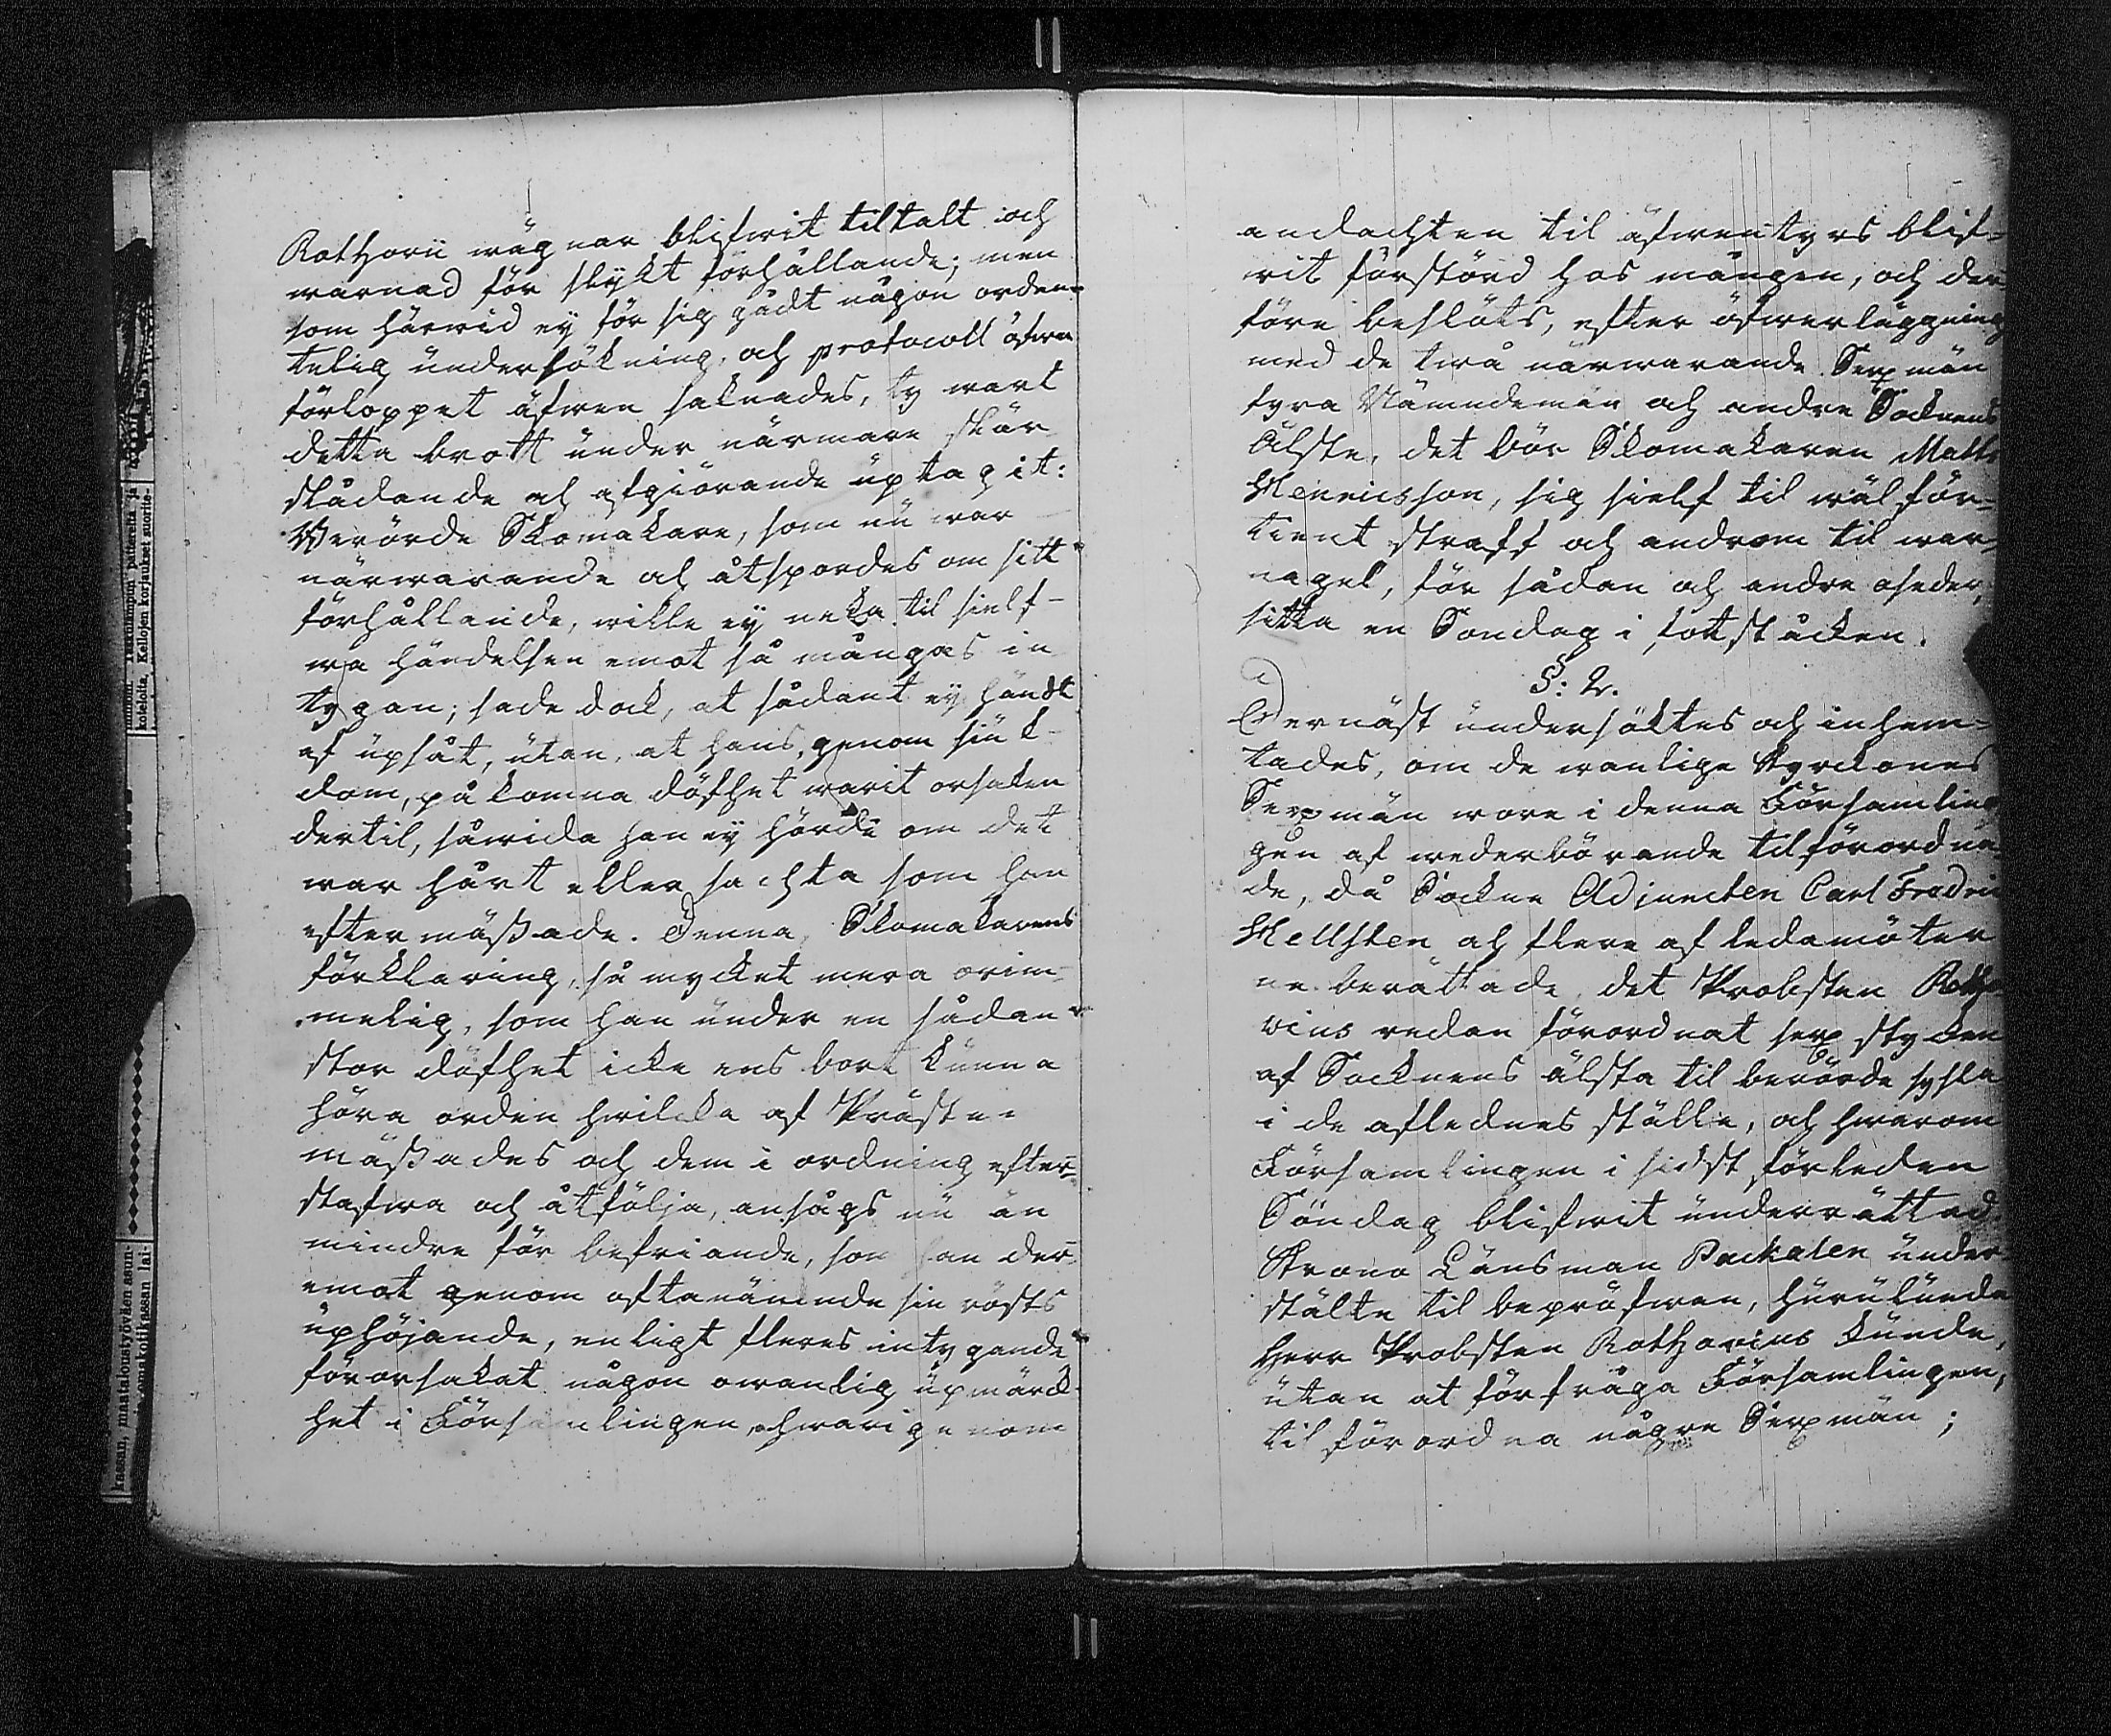 Rothovii wägnar blifwit tiltalt och
warnad för slykt förhållande; men
som härwid ey för sig gådt någon orden-
telig undersökning, och protocoll öfwer
förloppet äfwen saknades, ty wart
detta brott under närmare skär
skådande och afgiörande uptagit:
Berörde Skomakare, som nu war
närwarande och åtspordes om sitt
förhållande, wille ey neka til sielf-
wa händelsen emot så mångas in
tygan; sade dock, at sådant ey händt
af upsåt, utan, at hans, genom siuk-
dom, påkomna döfhet warit orsaken
dertil, såwida han ey hörde om det
war hårt eller sachta som han
eftermäßade. Denna Skomakarens
förklaring, så mycket mera orim-
melig, som han under en sådan
stor döfhet icke ens bort kunna
höra orden hwilcka af Präste-
mäßades och dem i ordning efter-
stafwa och åtfölja, ansågs nu än
mindre för befriande, som han der-
emot genom oftanämnde sin rösts
uphöjande, enligt fleres intygande
förorsakat någon owanlig upmärck-
het i Församlingen, hwarigenom
andachten til äfwentyrs blif-
wit förstörd hos mången, och der
före beslöts, efter öfwerläggning
med de twå närwarande Sexmän
fyra Nämndemän och andre Socknens
Älste, det bör Skomakaren Matts
Henricsson, sig sielf til wälför-
tient straff och androm til war-
nagel, för sådan och andre oseder,
sitta en Söndag i fotstäcken.
§: 2.
Dernäst undersöktes och inhem-
tades, om de wanlige Kyrckones
Sexmän wore i denna Församlin
gen af wederbörande tilförordna
de, då Sockne Adjuncten Carl Fredric
Hellsten och flere af ledamöter
ne berättade, det Probsten Rotho
vius redan förordnat sex stycken
af Socknens älsta til berörde sysla
i de aflednes ställe, och hwarom
Församlingen i sidst förleden
Söndag blifwit underrättad.
Krono Länsman Packalen under-
stälte til bepröfwan, huruledes
Herr Probsten Rothovius kunde,
utan at förfråga Församlingen,
tilförordna någre Sexmän;